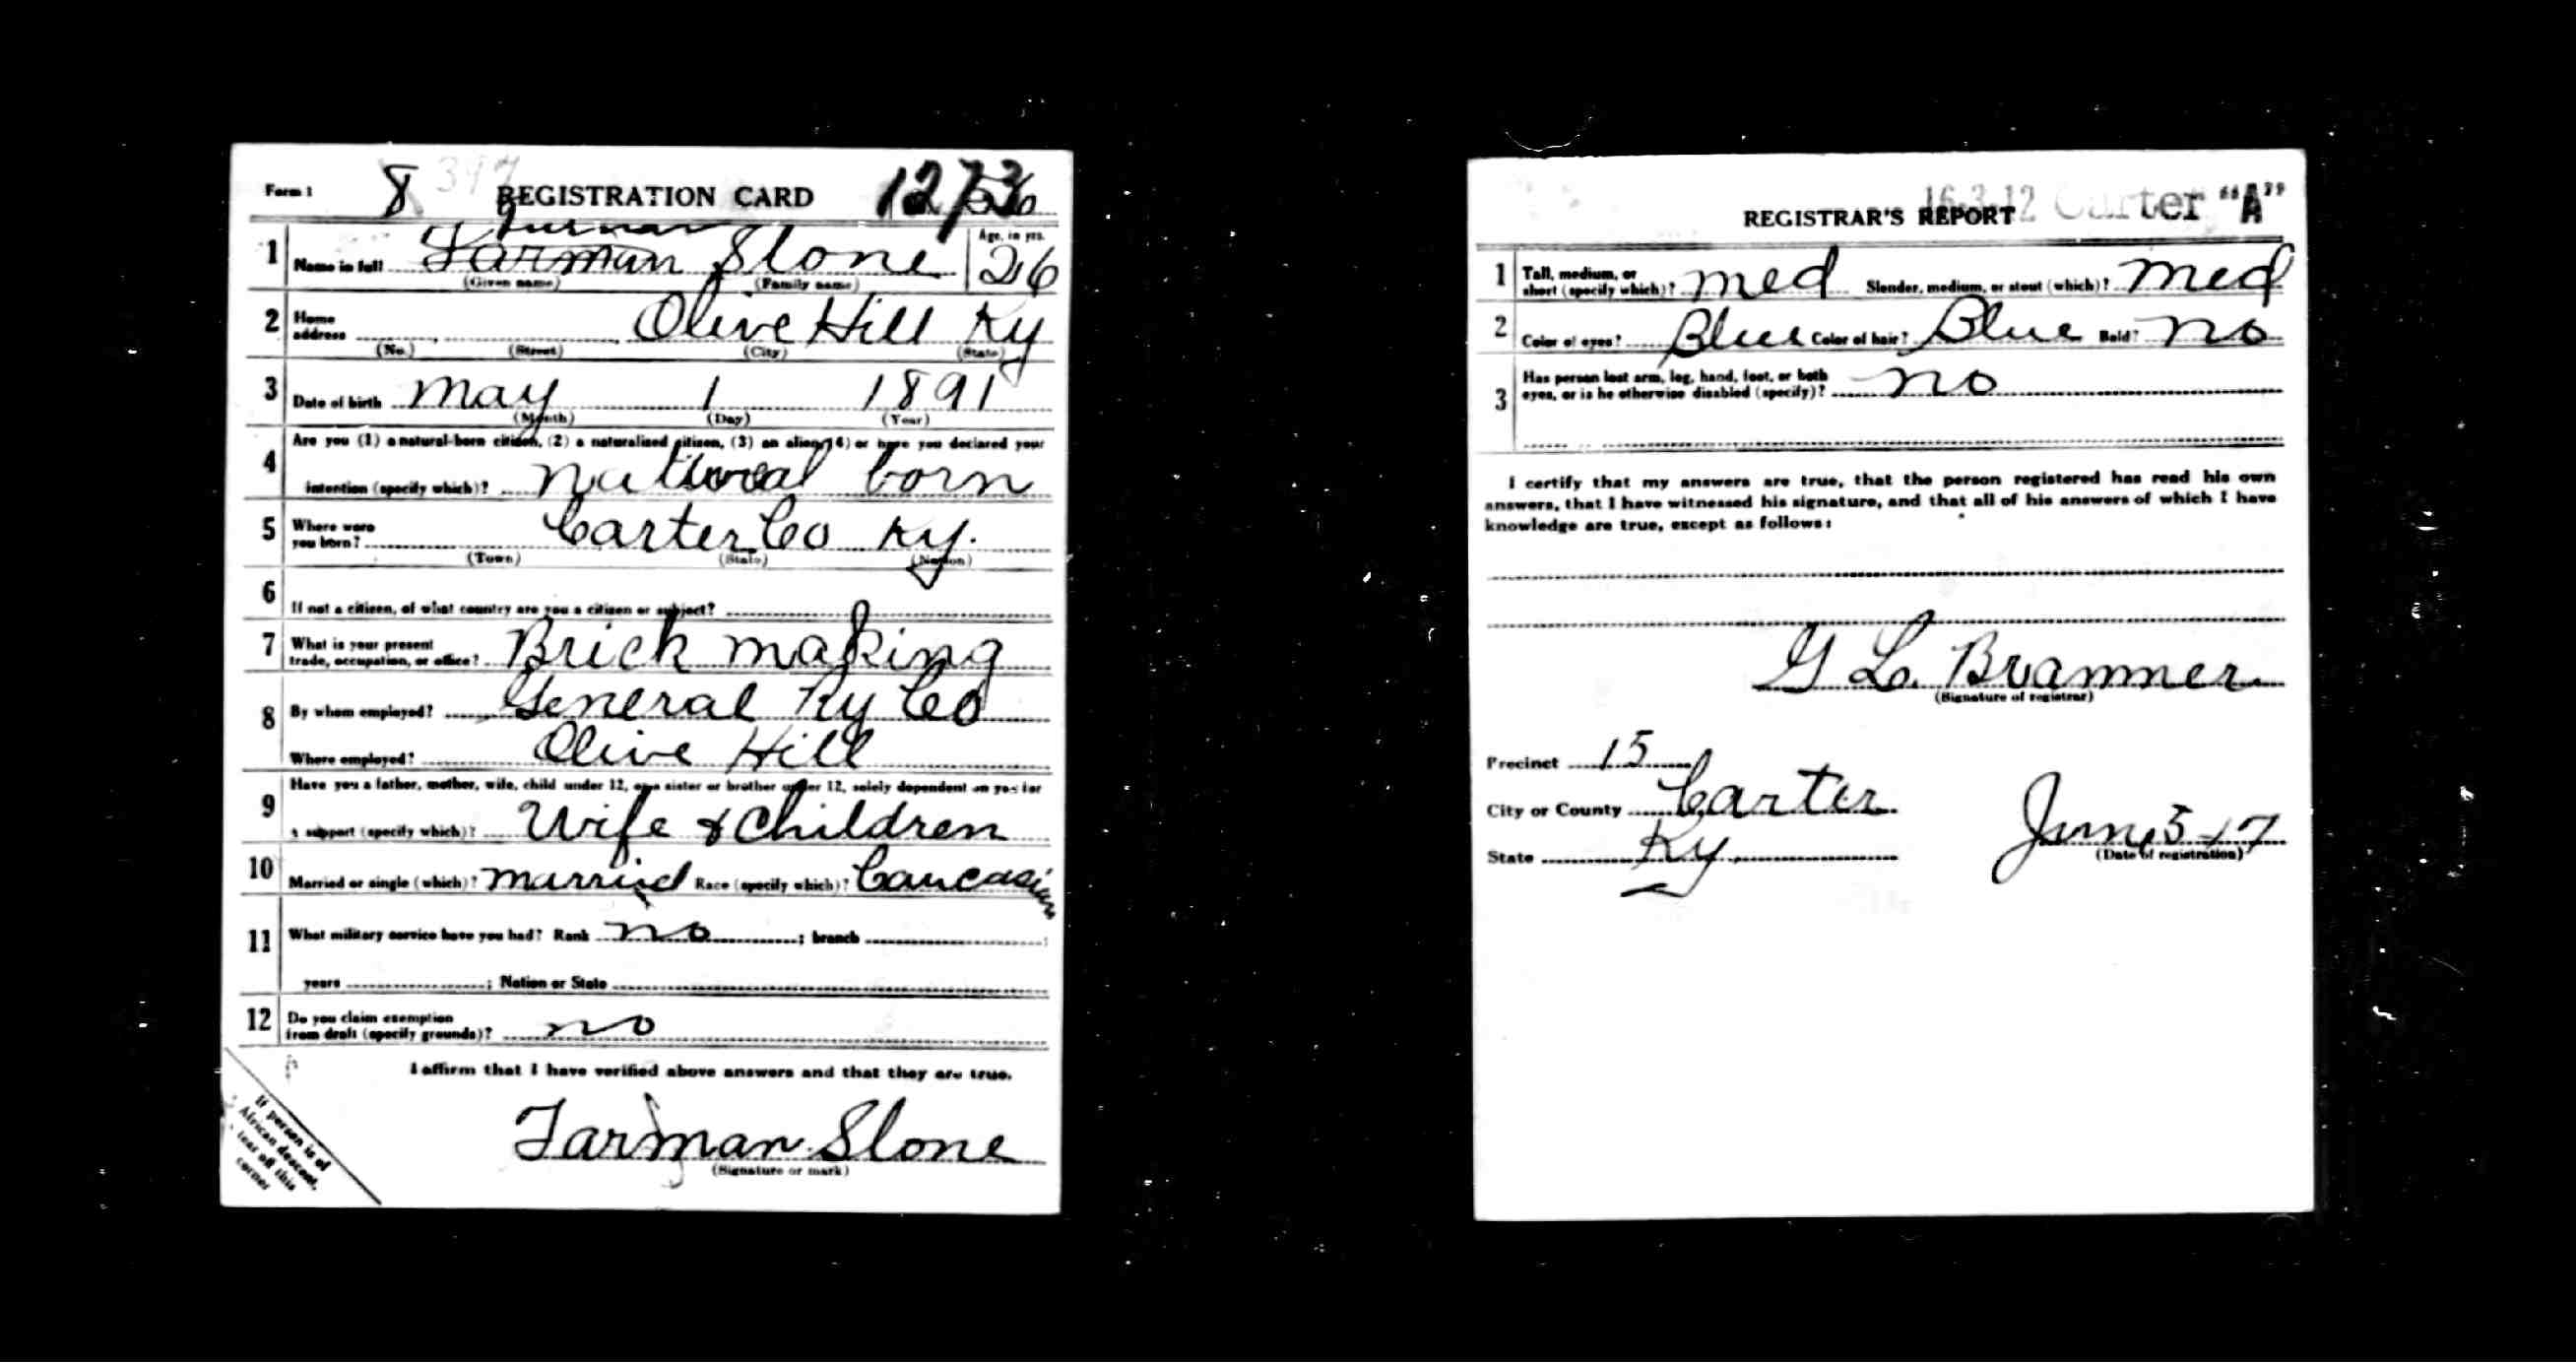 Form 1 8 REGISTRATION CARD
1 Name in full Farman Slone Age, in yrs. 26
(Given name) (Family name)
2 Home address Olive Hill Ky
(No.) (Street) (City) (State)
3 Date of birth May 1 1891
(Month) (Day) (Year)
4 Are you (1) a natural-born citizen, (2) a naturalized citizen, (3) an alien, (4) or have you declared your
intention (specify which)? natural born
5 Where were you born? Carter Co Ky.
(Town) (State) (Nation)
6 If not a citizen, of what country are you a citizen or subject?
7 What is your present trade, occupation, or office? Brick making
8 By whom employed? General Ky Co
Where employed? Olive Hill
9 Have you a father, mother, wife, child under 12, or a sister or brother under 12, solely dependent on you for
support (specify which)? Wife & Children
10 Married or single (which)? married Race (specify which)? Caucasian
11 What military service have you had? Rank no ; branch ;
years ; Nation or State
12 Do you claim exemption from draft (specify grounds)? no
I affirm that I have verified above answers and that they are true.
Farman Slone
(Signature or mark)
If person is of
African descent,
tear off this
corner
16-3-12 Carter "A"
REGISTRAR'S REPORT
1 Tall, medium, or short (specify which)? med Slender, medium, or stout (which)? med
2 Color of eyes? Blue Color of hair? Blue Bald? no
3 Has person lost arm, leg, hand, foot, or both eyes, or is he otherwise disabled (specify)? no
I certify that my answers are true, that the person registered has read his own
answers, that I have witnessed his signature, and that all of his answers of which I have
knowledge are true, except as follows:
G L. Brammer
(Signature of registrar)
Precinct 15
City or County Carter
State Ky.
June 5 - 17
(Date of registration)